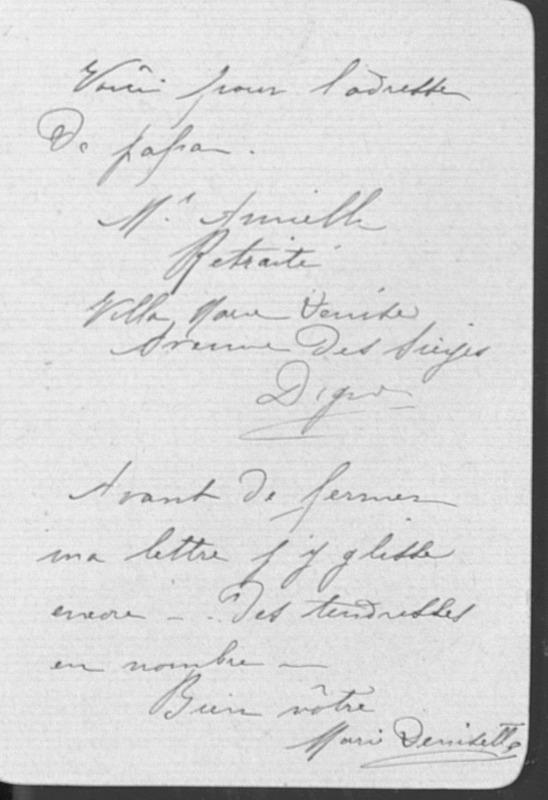 Voici pour l'adresse
De papa.
Mr Amielh
Retraité
Villa Marie Denise
Avenue Des Sieyes
Digne
Avant de fermer
ma lettre j'y glisse
encore - .. des tendresses
en nombre —
Bien vôtre
Marie Denisette